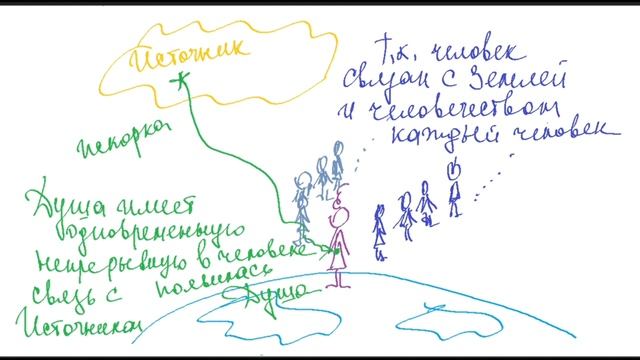 Источник
Т.к. человек
связан с Землей
и человечеством
каждый человек
искорка
Душа имеет
одновременную
непрерывную
связь с
Источником
в человеке
появилась
Душа